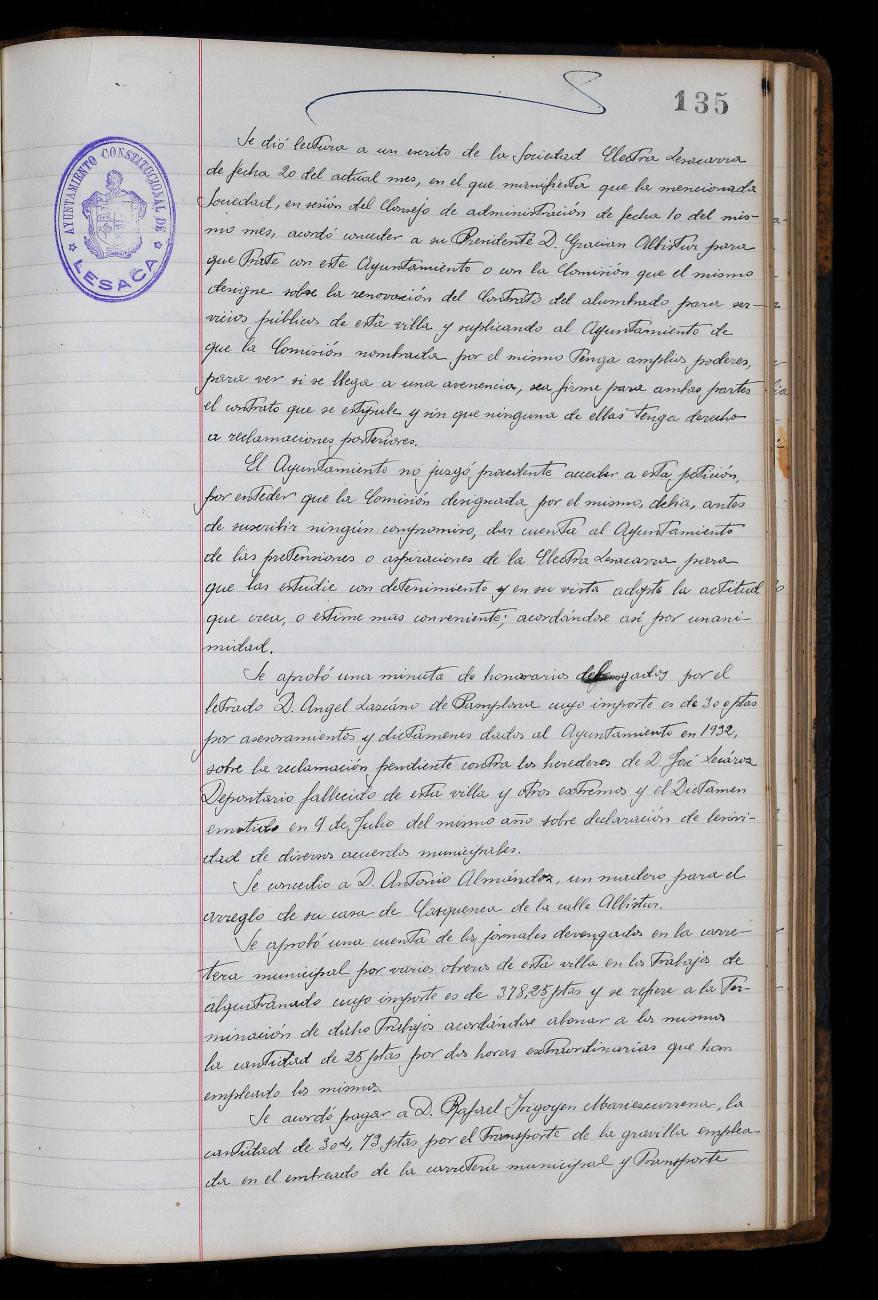 135
AYUNTAMIENTO CONSTITUCIONAL DE
LESACA
Se dió lectura a un escrito de la Sociedad Electra Lesacarra
de fecha 20 del actual mes, en el que manifiesta que la mencionada
Sociedad, en sesión del Consejo de administración de fecha 10 del mis-
mo mes, acordó conceder a su Presidente D. Gracian Albistur para
que trate con este Ayuntamiento o con la Comisión que el mismo
designe sobre la renovación del Contrato del alumbrado para ser-
vicios públicos de esta villa y suplicando al Ayuntamiento de
que la Comisión nombrada por el mismo tenga amplios poderes,
para ver si se llega a una avenencia, sea firme para ambas partes
el contrato que se estipule y sin que ninguna de ellas tenga derecho
a reclamaciones posteriores.
El Ayuntamiento no juzgó procedente acceder a esta petición,
por enteder que la Comisión designada por el mismo, debia, antes
de suscribir ningún compromiso, dar cuenta al Ayuntamiento
de las pretensiones o aspiraciones de la Electra Lesacarra para
que las estudie con detenimiento y en su vista adopte la actitud
que crea, o estime mas conveniente; acordándose así por unani-
midad.
Se aprobó una minuta de honorarios por el
letrado D. Angel Lazcáno de Pamplona cuyo importe es de 300 ptas
por asesoramientos y dictámenes dados al Ayuntamiento en 1932,
sobre la reclamación pendiente contra los herederos de D. José
Depositario fallecido de esta villa y otros extremos y el Dictamen
emitido en 9 de Julio del mismo año sobre declaración de lesivi-
dad de diversos acuerdos municipales.
Se concedio a D. Antonio Almándoz, un madero para el
arreglo de su casa de de la calle Albistur.
Se aprobó una cuenta de los jornales devengados en la carre-
tera municipal por varios obreros de esta villa en los trabajos de
alquitranado cuyo importe es de 378,25 ptas y se refiere a la Ter-
minación de dicho trabajos acordándose abonar a los mismos
la cantidad de 25 ptas por dos horas extraordinarias que han
empleado los mismos.
Se acordó pagar a D. Rafael Irigoyen Mariezcurrena, la
cantidad de 304,73 ptas por el transporte de la gravilla emplea-
da en el embreado de la carretera municipal y transporte